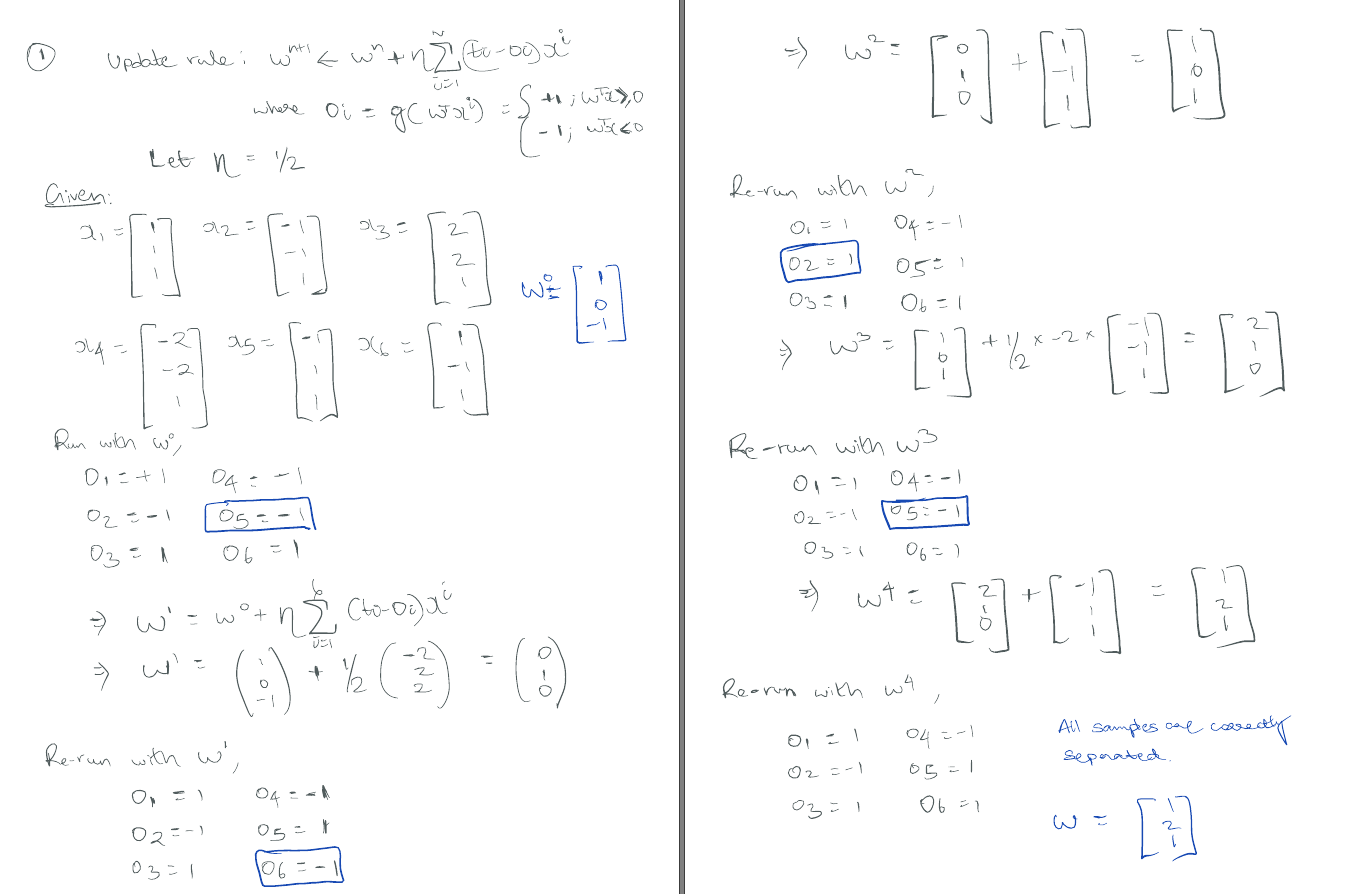 ① Update rule: wⁿ⁺¹ ← wⁿ + η Σ_{i=1}^{N} (ti - oi) xⁱ
where oi = g(wᵀxⁱ) = { +1 ; wᵀx ≥ 0
-1 ; wᵀx < 0
Let η = 1/2
Given:
x₁ = [1 1 1] x₂ = [-1 -1 1] x₃ = [2 2 1]
w⁰ = [1 0 -1]
x₄ = [-2 -2 1] x₅ = [-1 1 1] x₆ = [1 -1 1]
Run with w⁰,
O₁ = +1 O₄ = -1
O₂ = -1 O₅ = -1
O₃ = 1 O₆ = 1
⇒ w¹ = w⁰ + η Σ_{i=1}^{6} (ti - oi) xⁱ
⇒ w¹ = (1 0 -1) + 1/2 (-2 2 2) = (0 1 0)
Re-run with w¹,
O₁ = 1 O₄ = -1
O₂ = -1 O₅ = 1
O₃ = 1 O₆ = -1
⇒ w² = [0 1 0] + [1 -1 1] = [1 0 1]
Re-run with w²,
O₁ = 1 O₄ = -1
O₂ = 1 O₅ = 1
O₃ = 1 O₆ = 1
⇒ w³ = [1 0 1] + 1/2 × -2 × [-1 -1 1] = [2 1 0]
Re-run with w³
O₁ = 1 O₄ = -1
O₂ = -1 O₅ = -1
O₃ = 1 O₆ = 1
⇒ w⁴ = [2 1 0] + [-1 1 1] = [1 2 1]
Re-run with w⁴,
O₁ = 1 O₄ = -1
O₂ = -1 O₅ = 1
O₃ = 1 O₆ = 1
All samples are correctly
separated.
w = [1 2 1]